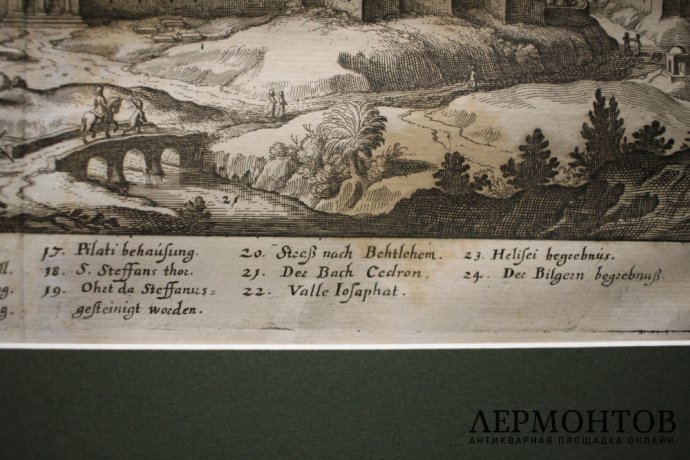 21
19
17. Pilati behaúsung.
18. S. Steffans thor.
19. Ohrt da Steffanus=
gesteinigt worden.
20. Straß nach Behtlehem.
21. Der Bach Cedron.
22. Valle Iosaphat.
23. Helisei begrebnus.
24. Der Bilgern begrebnuß.
ЛЕРМОНТОВ
АНТИКВАРНАЯ ПЛОЩАДКА ОНЛАЙН